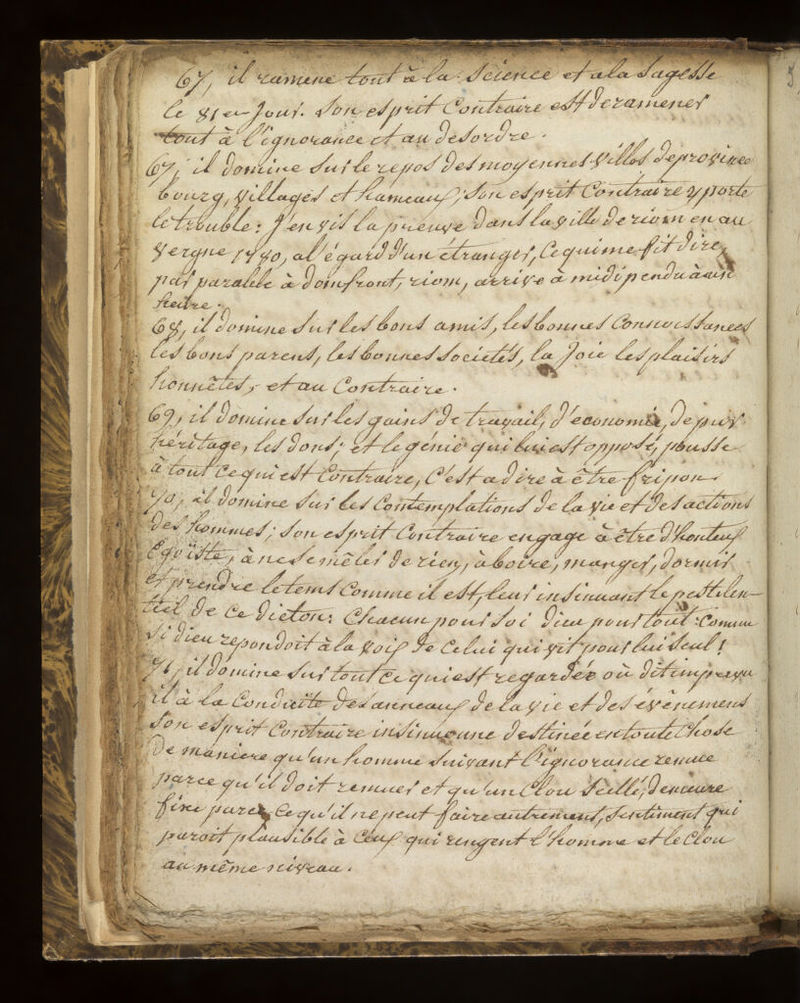 67, il ramene tout à la Science et ala Sagesse
le 81er Jour. Son esprit Contraire est deramener
tout à l'ignorance et au desordre.
67, il domine sur le repos des moyennes Villes deprovince
bourg, villages et hameaux; Son esprit Contraire y porte
le trouble: J'en vis la preuve dans la ville de riom en au
vergne 1790, al'égard d'un étranger, Ce quime fit dire,
par paralele à domfront, riom, arrivé à midi pendu à une
heure.
68, il domine sur les bons amis, les bonnes Connoissances
les bons parens, les bonnes Societés, la Joie les plaisirs
honnêtes, et au Contraire.
69, il domine sur les gains de travail, d'economie, de pur
héritage, les dons; et le génie qui lui est opposé, pousse
à tout ce qui est Contraire, C'est a dire à être fripon
70, il domine sur les Contemplations de la vie et des actions
des hommes; Son esprit Contraire engage à être d'honteux
Egoïste, à ne se mêler de rien, à boire, manger, dormir
et prendre letems Comme il est, leur insinuant le pestilen-
tiel de Ce dicton: Chacun pour Soi dieu pour tout: Comme
Si dieu repondoit à la voix de Celui qui vit pour lui Seul!
71, il domine sur tout ce qui est regardée où dit imprevu
il à la Conduite des anneaux de la vie et des évênemens
Son esprit Contraire insinue une destinée en toute Chose
De maniere qu'un homme Suivant l'ignorance remue
parce qu'il doit remuer et qu'un Clou Scellé, demeure
fixe parce Ce qu'il ne peut faire autrement, Sentiment qui
paroit plausible à Ceux qui rengent l'homme et le Clou
au même niveau.